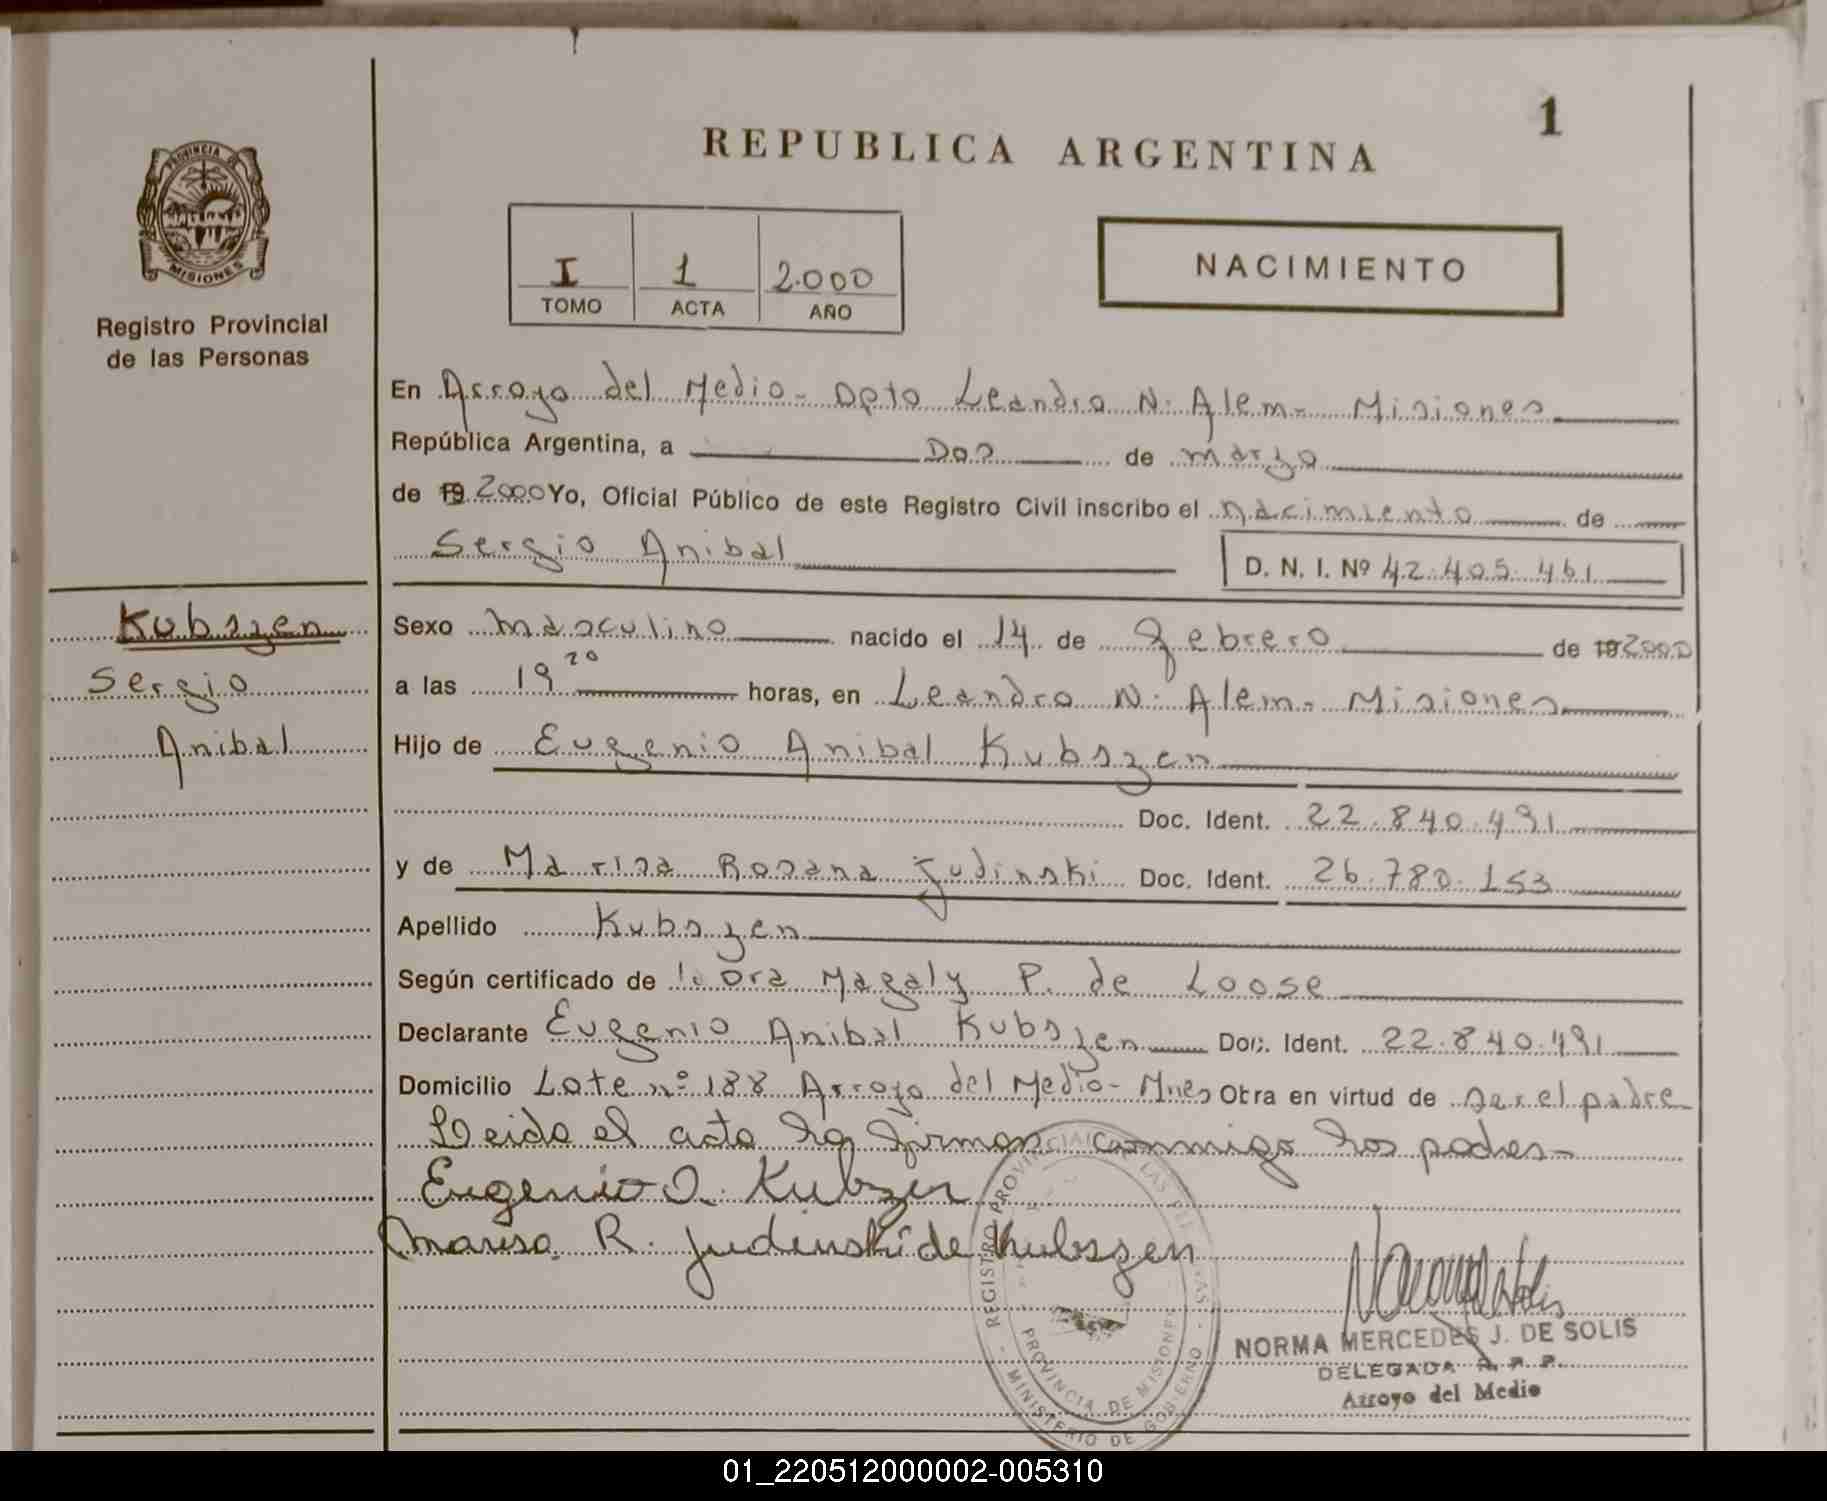 1
REPUBLICA ARGENTINA
PROVINCIA DE
MISIONES
Registro Provincial
de las Personas
I 1 2.000
TOMO ACTA AÑO
NACIMIENTO
En Arroyo del Medio - Dpto Leandro N. Alem - Misiones
República Argentina, a Dos de marzo
de 19 2000 Yo, Oficial Público de este Registro Civil inscribo el nacimiento de
Sergio Anibal
D. N. I. Nº 42.405.461
Kubszen
Sergio
Anibal
Sexo masculino nacido el 14 de febrero de 19 2000
a las 19 20 horas, en Leandro N. Alem - Misiones
Hijo de Eugenio Anibal Kubszen
Doc. Ident. 22.840.491
y de Marisa Rosana Judinski Doc. Ident. 26.780.153
Apellido Kubszen
Según certificado de la Dra Magaly P. de Loose
Declarante Eugenio Anibal Kubszen Doc. Ident. 22.840.491
Domicilio Lote nº 188 Arroyo del Medio - Mnes Obra en virtud de ser el padre
Leida el acta la firman conmigo los padres -
Eugenio A. Kubzen
Marisa R. Judinski de Kubszen
REGISTRO PROVINCIAL DE LAS PERSONAS - MINISTERIO DE GOBIERNO -
PROVINCIA DE MISIONES
NORMA MERCEDES J. DE SOLIS
DELEGADA R. P. P.
Arroyo del Medio
01_220512000002-005310